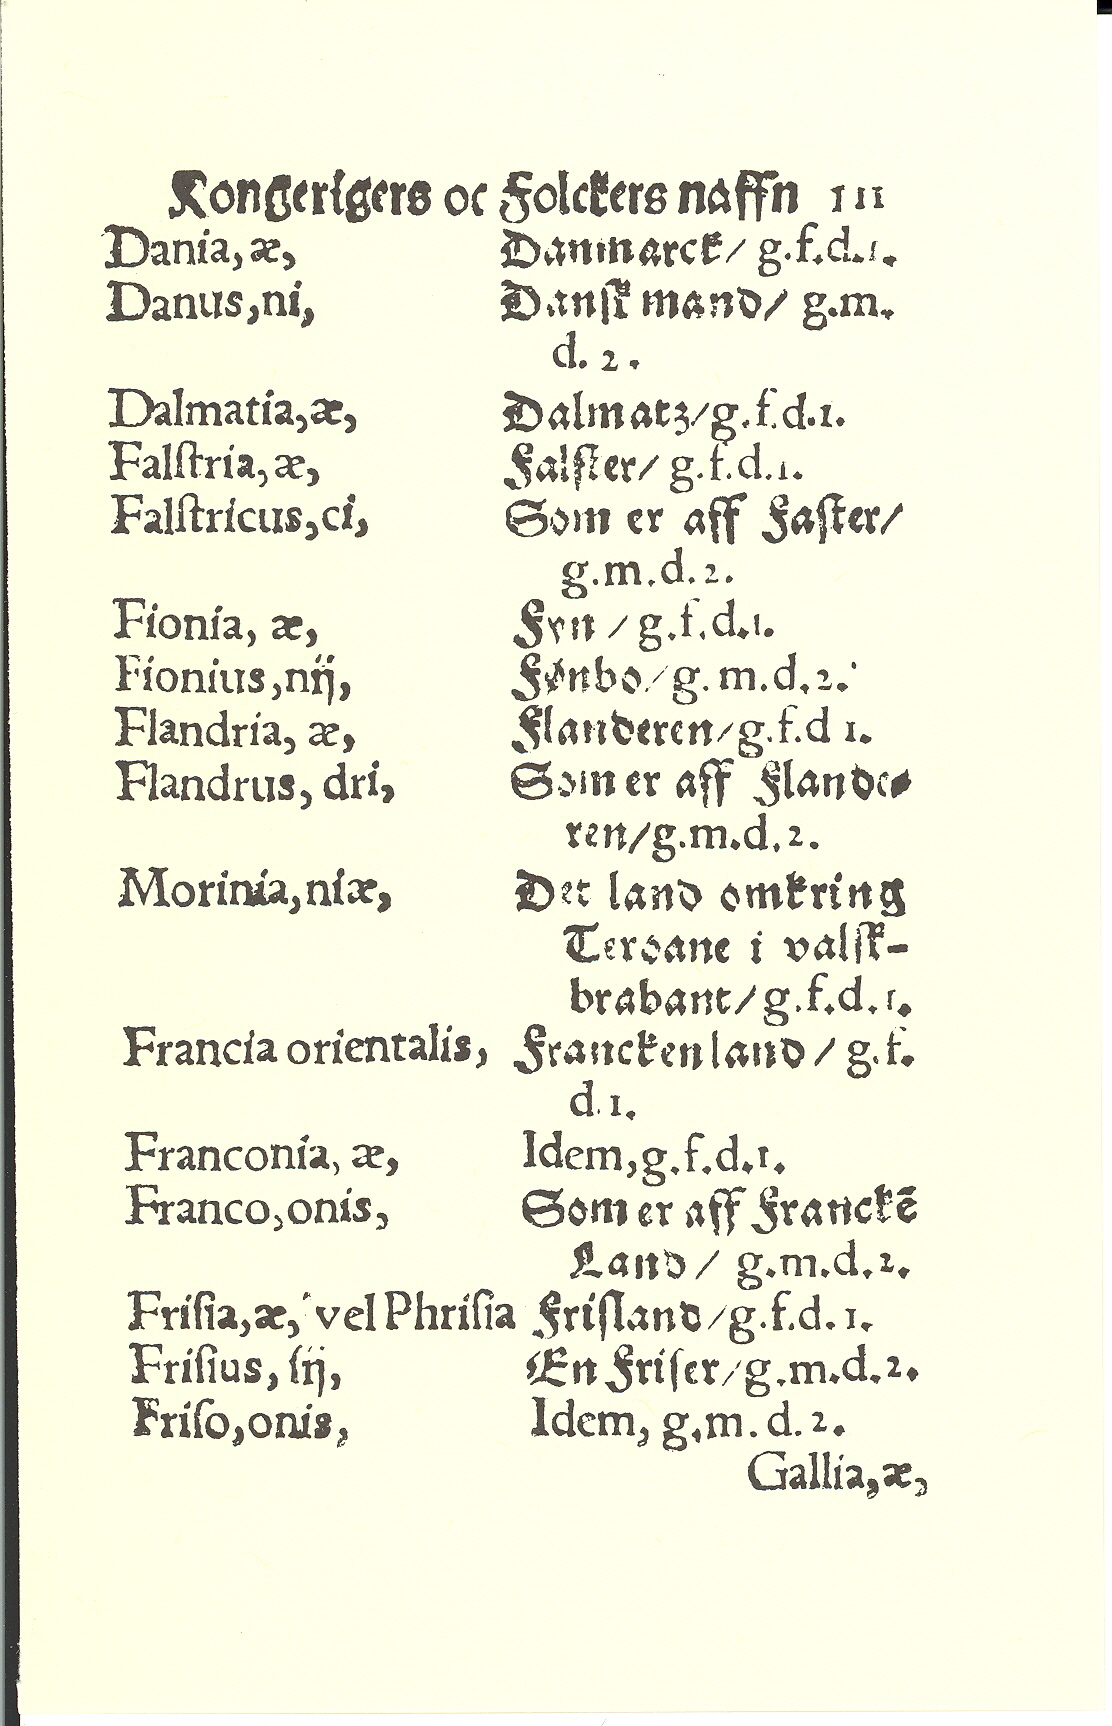 Kongerigers oc Folckers naffn 111
Dania, æ, Danmarck/ g.f.d.1.
Danus, ni, Dansk mand/ g.m.
d. 2.
Dalmatia, æ, Dalmatz/ g.f.d.1.
Falſtria, æ, Falſter/ g.f.d.1.
Falſtricus, ci, Som er aff Faſter/
g.m.d.2.
Fionia, æ, Fyn / g.f.d.1.
Fionius, nij, Fønbo/ g.m.d.2.
Flandria, æ, Flanderen/ g.f.d 1.
Flandrus, dri, Som er aff Flande⸗
ren/ g.m.d.2.
Morinia, niæ, Det land omkring
Teroane i valſk-
brabant/ g.f.d.1.
Francia orientalis, Franckenland / g.f.
d.1.
Franconia, æ, Idem, g.f.d.1.
Franco, onis, Som er aff Franckē
Land / g.m.d.2.
Friſia, æ, vel Phriſia Friſland/ g.f.d.1.
Friſius, ſij, En Friſer/ g.m.d.2.
Friſo, onis, Idem, g.m.d.2.
Gallia, æ,